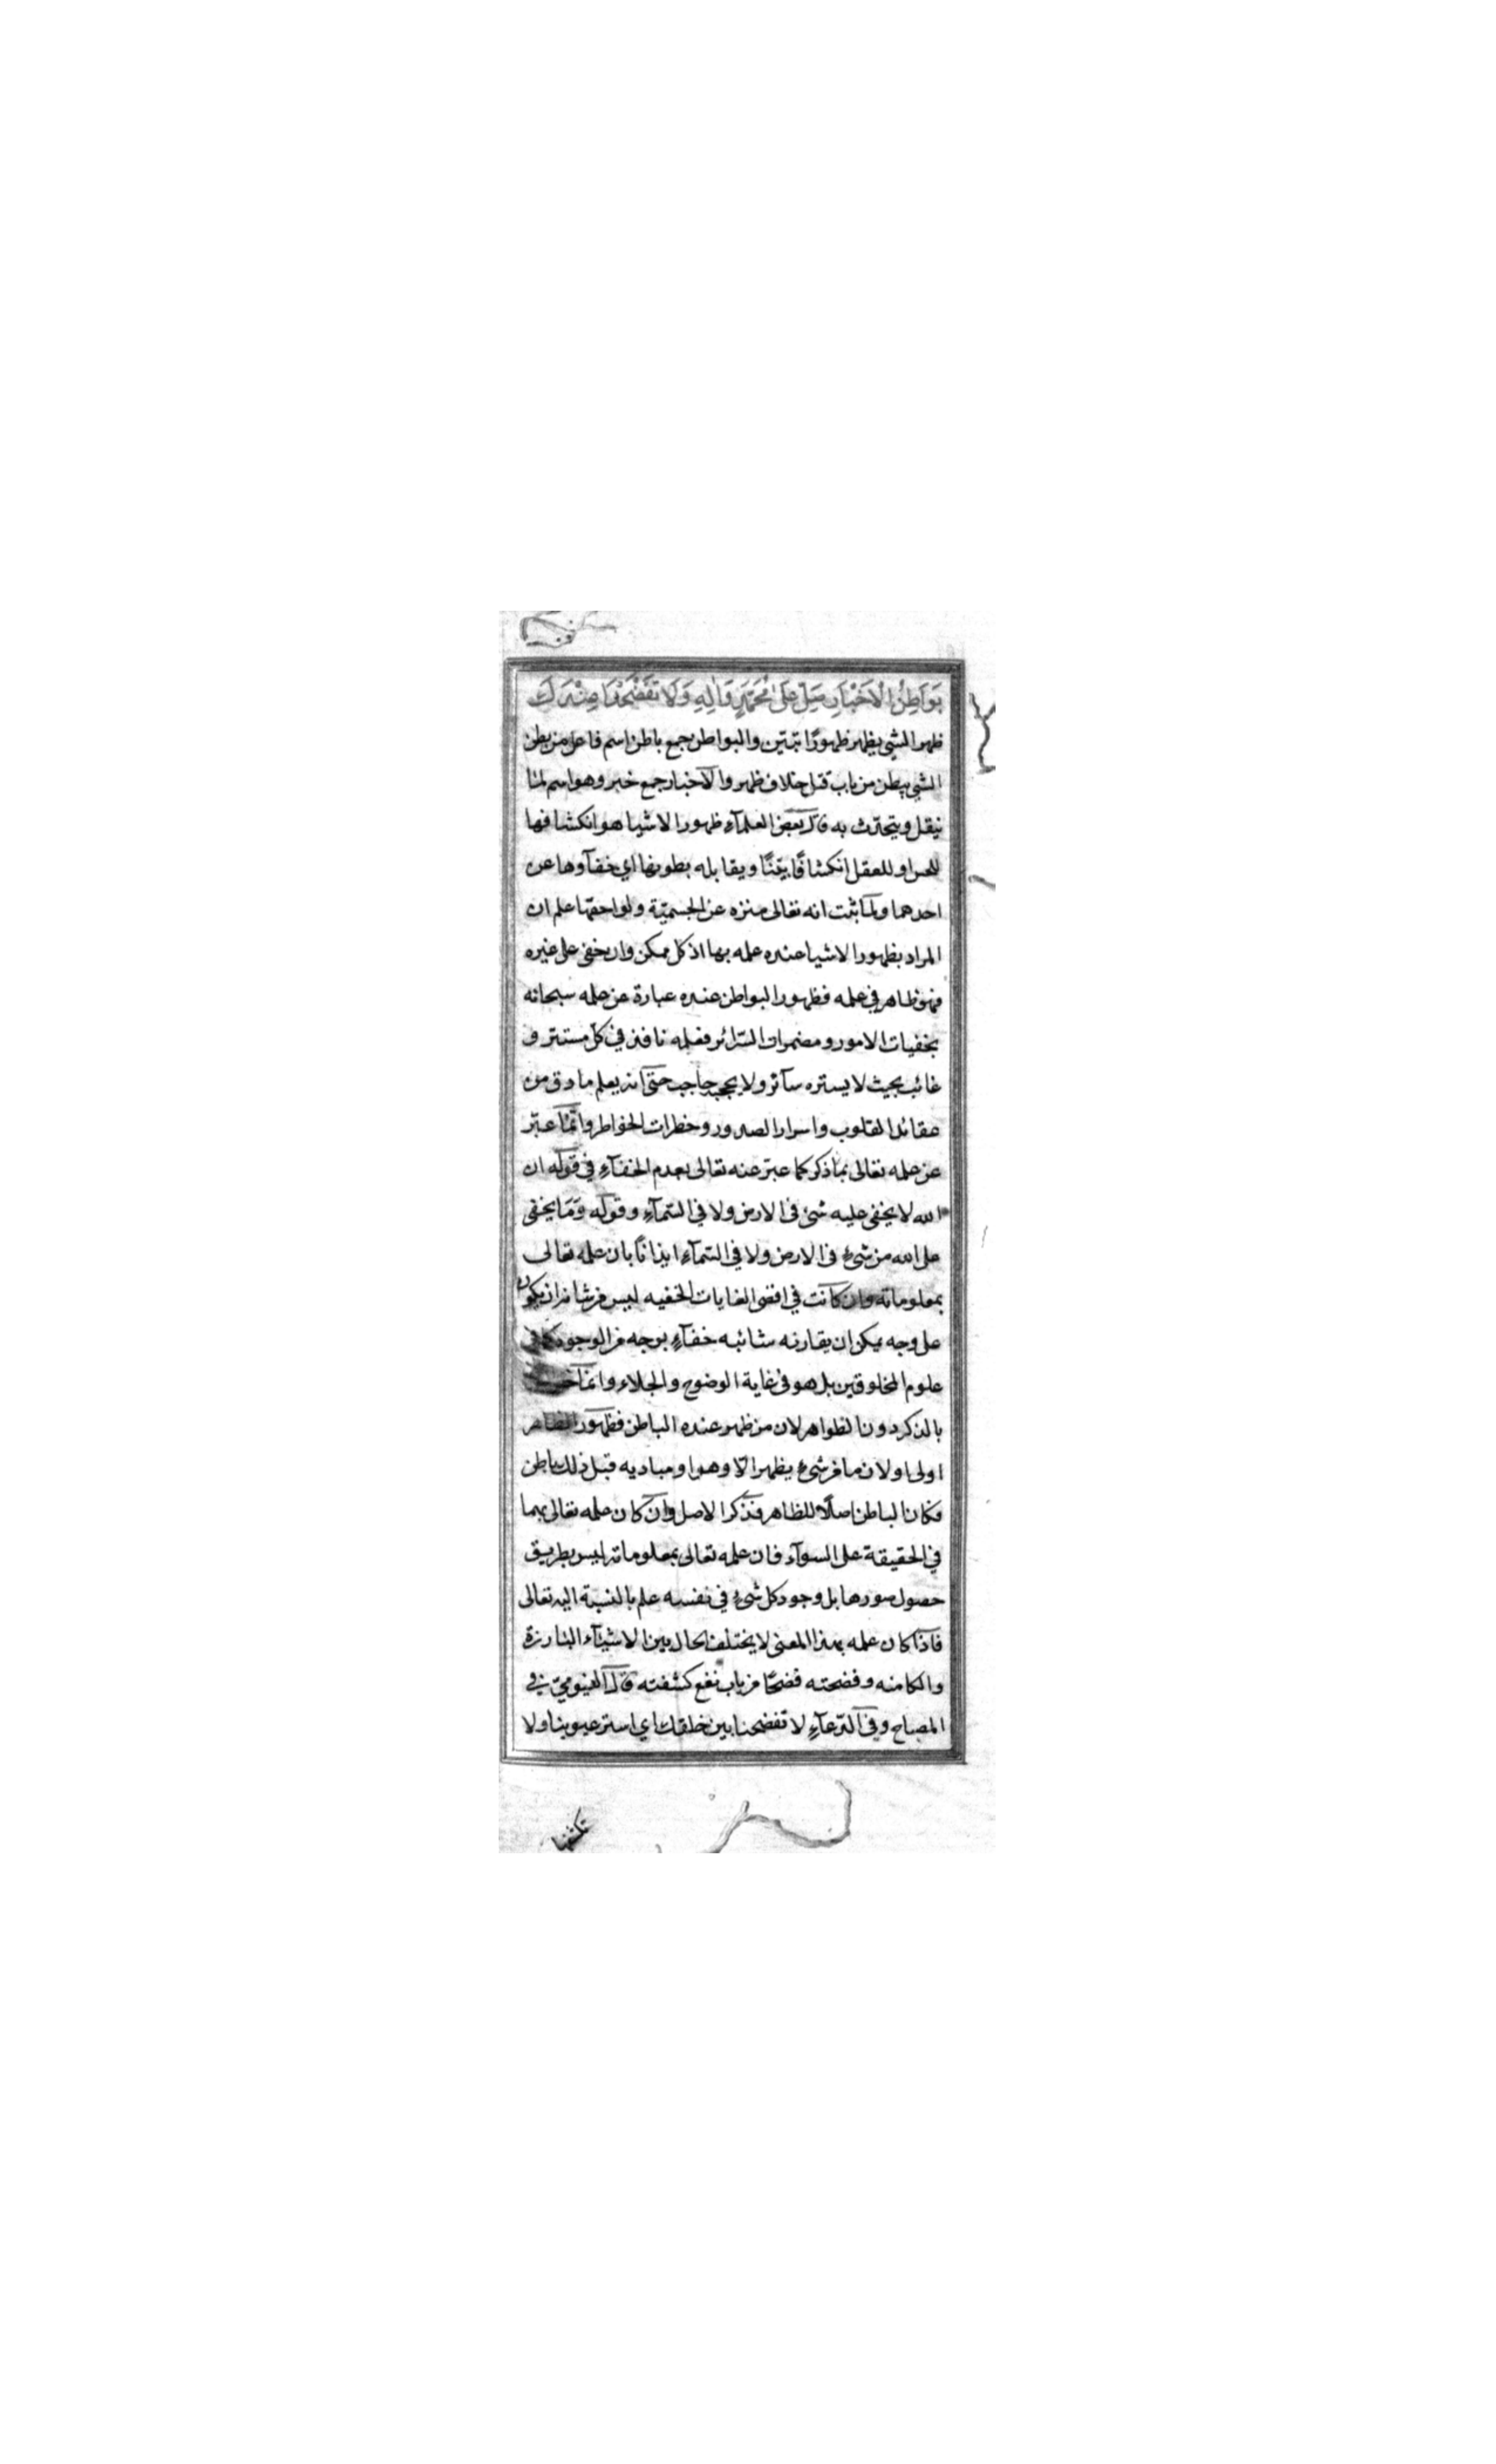 بَوَاطِنُ الْاَخْبَارِ صَلِّ عَلىٰ مُحَمَّدٍ وَاٰلِهِ وَلَا تَفْضَحْنَا لَدَيْكَ
ظهر الشيء يظهر ظهورًا تبيّن والبواطن جمع باطن اسم فاعل من بطن
الشي يبطن من باب قتل خلاف ظهر والاخبار جمع خبر وهو اسم لما
ينقل ويتحدّث به قال بعض العلمآء ظهور الاشيا هو انكشافها
للحس او للعقل انكشافًا بيّنًا ويقابله بطونها اي خفآوها عن
احدهما ولمّا ثبت انه تعالى منزه عن الجسميّة ولواحقها علم ان
المراد بظهور الاشيا عنده علمه بها اذ كل ممكن وان خفي على غيره
فهو ظاهر في علمه فظهور البواطن عنده عبارة عن علمه سبحانه
بخفيات الامور ومضمرات السّرائر فعلمه نافذ في كلّ مستتر و
غائب بحيث لا يستره سآتر ولا يحجبه حاجب حتى انه يعلم ما دق من
عقائد القلوب واسرار الصدور وخطرات الخواطر وانّما عبّر
عن علمه تعالى بما ذكر كما عبّر عنه تعالى بعدم الخفآءِ في قوله ان
الله لا يخفى عليه شئ فى الارض ولا في السّمآءِ وقوله وَمَا يخفى
على الله من شئ فى الارض ولا في السّمآءِ ايذانًا بان علمه تعالى
بمعلوماته وان كانت في اقصى الغايات الخفيه ليس من شانه ان يكون
على وجه يمكن ان يقارنه شائبه خفآءٍ بوجه من الوجوه كما في
علوم المخلوقين بل هو فى غاية الوضوح والجلاء وانما
بالذكر دون الظواهر لان من ظهر عنده الباطن فظهور الظاهر
اولى او لان ما من شئ يظهر الّا وهو او مباديه قبل ذلك باطن
فكان الباطن اصلًا للظاهر فذكر الاصل وان كان علمه تعالى بهما
في الحقيقة على السوآء فان علمه تعالى بمعلوماته ليس بطريق
حصول صورها بل وجود كل شئ في نفسه علم بالنسبة اليه تعالى
فاذا كان علمه بهذا المعنى لا يختلف الحال بين الاشيآء البارزة
والكامنه وفضحته فضحًا من باب نفع كشفته قال الفيوميّ في
المصباح وفي الدّعآءِ لا تفضحنا بين خلقك اي استر عيوبنا ولا
تكشفها